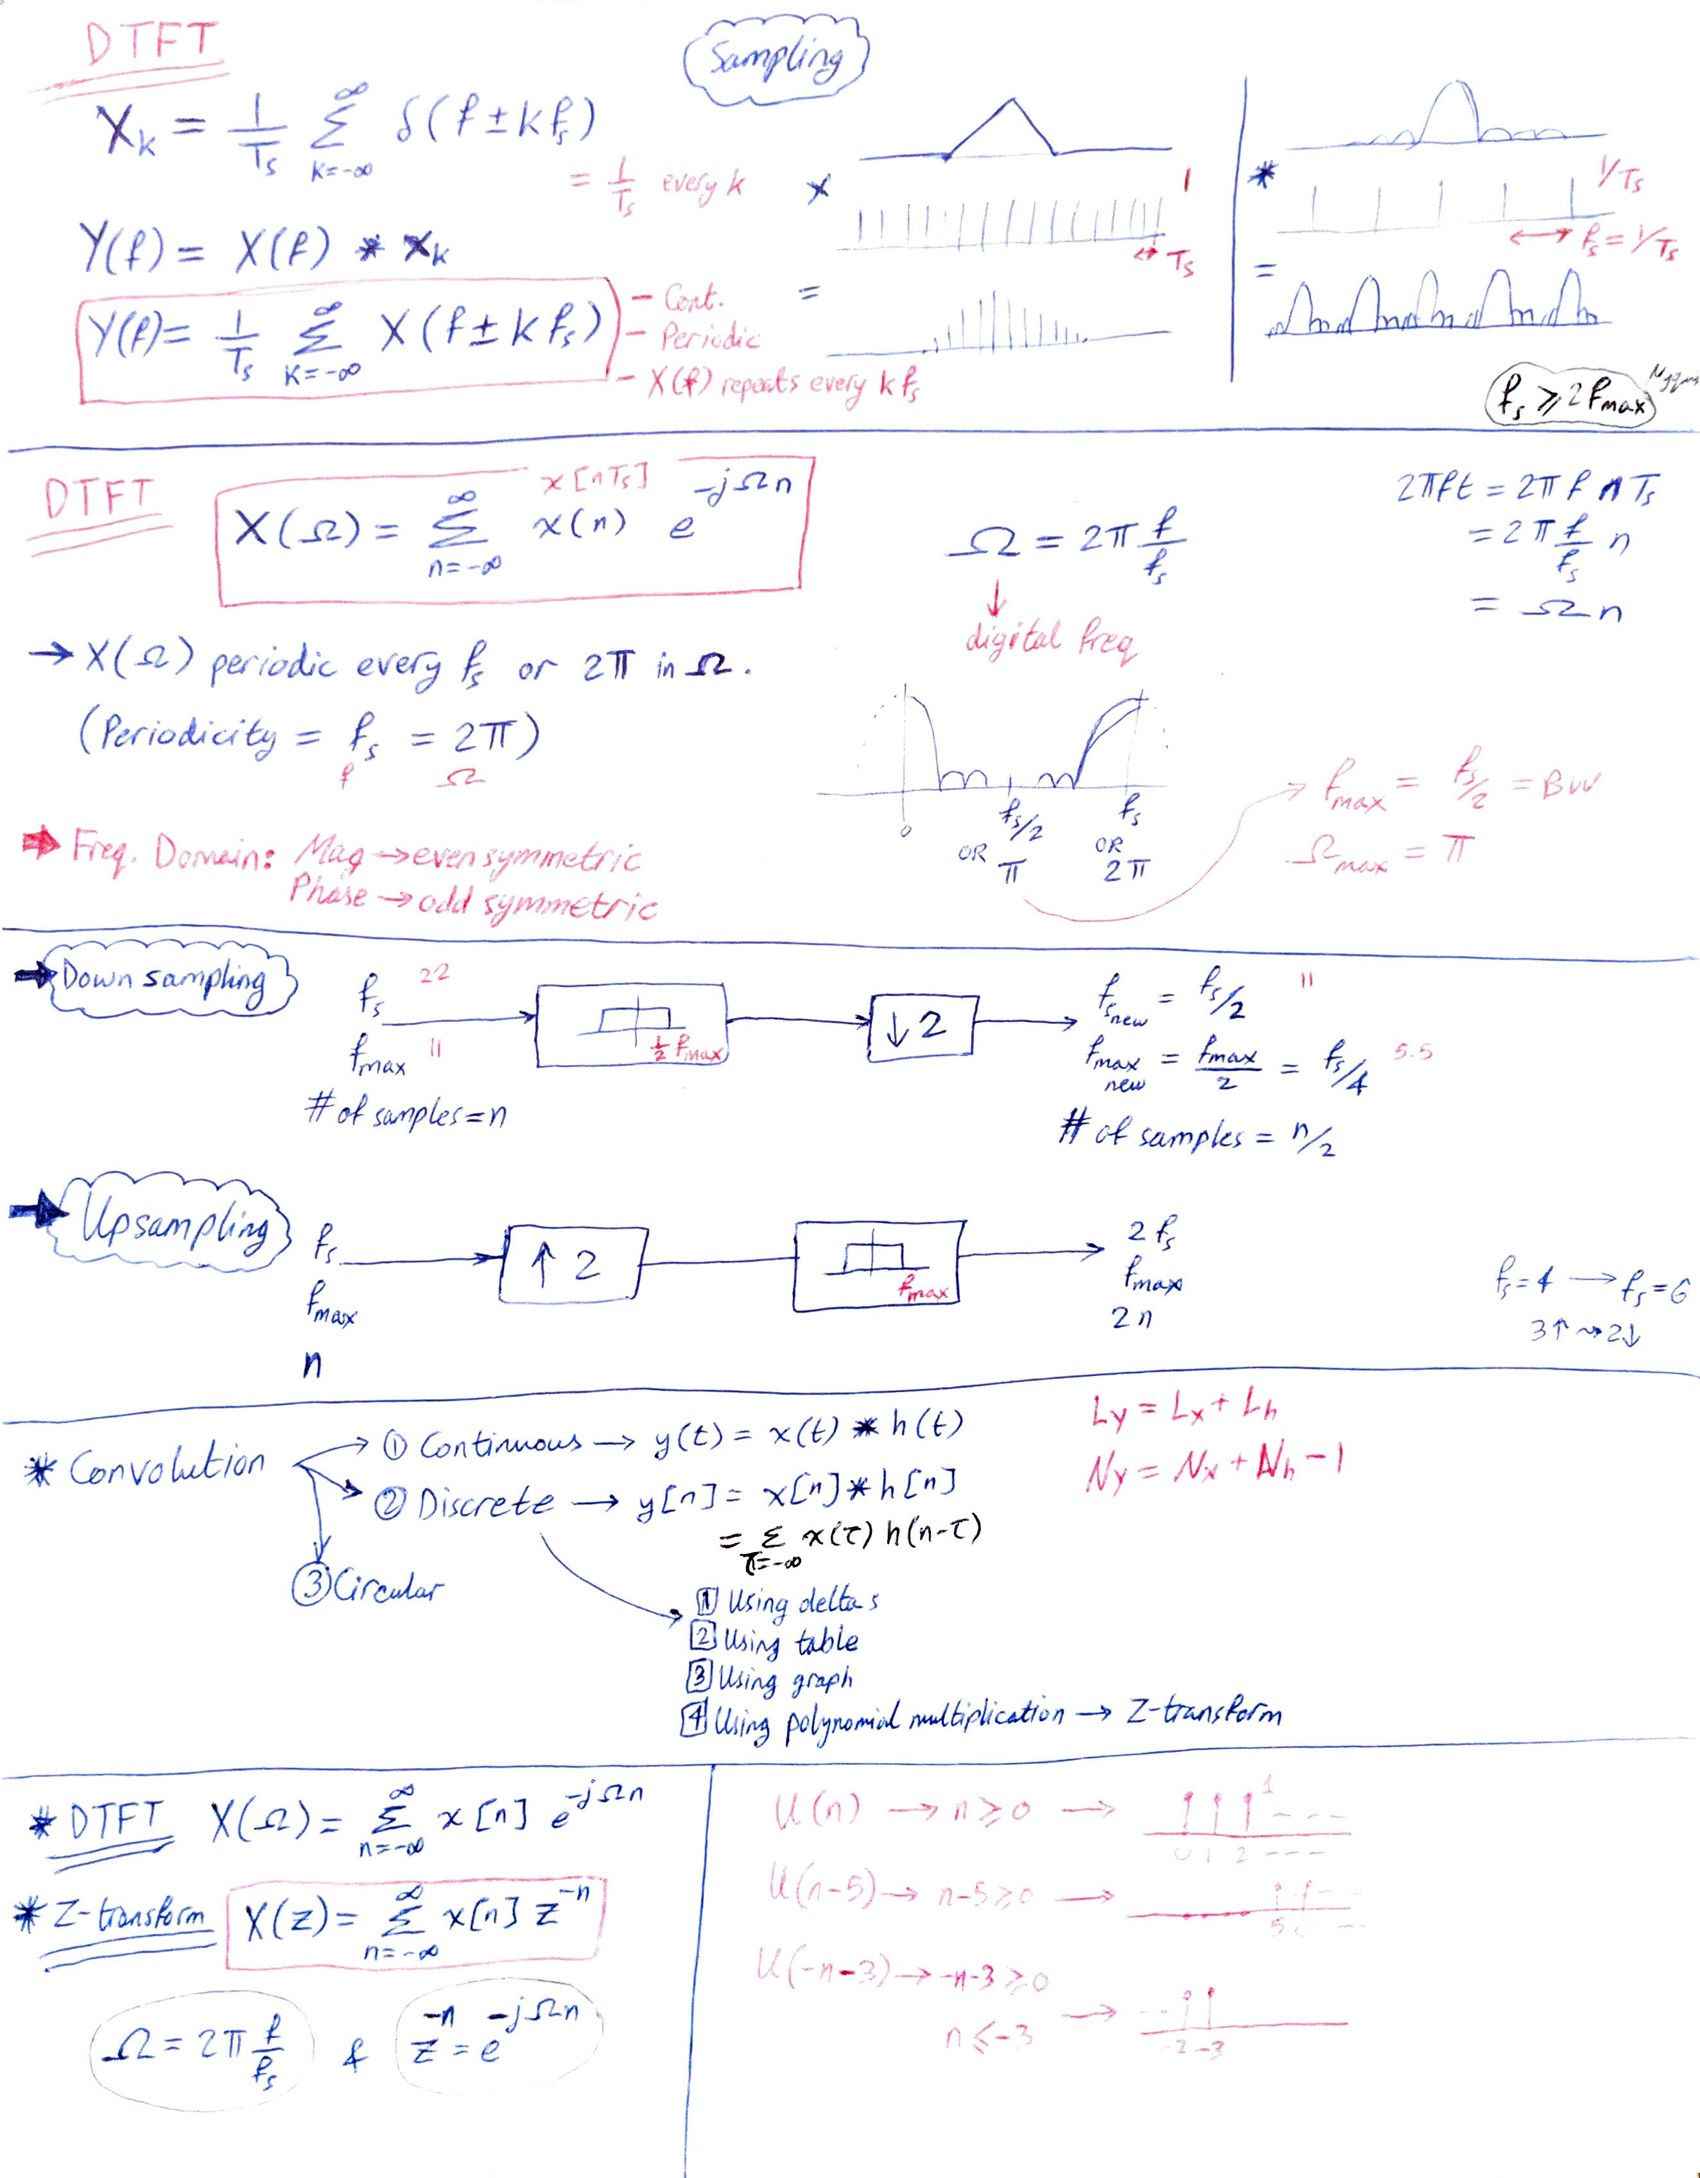 DTFT
Sampling
X_k = 1/T_s Σ_{k=-∞}^{∞} δ(f ± k f_s)
= 1/T_s every k
x
1
T_s
*
1/T_s
f_s = 1/T_s
Y(f) = X(f) * x_k
Y(f) = 1/T_s Σ_{K=-∞}^{∞} X(f ± k f_s)
- Cont.
- Periodic
- X(f) repeats every k f_s
=
=
f_s ⩾ 2 f_max
DTFT
x[nT_s]
X(Ω) = Σ_{n=-∞}^{∞} x(n) e^{-jΩn}
Ω = 2π f/f_s
↓
digital freq
2πft = 2π f n T_s
= 2π f/f_s n
= Ω n
→ X(Ω) periodic every f_s or 2π in Ω.
(Periodicity = f_s = 2π)
f Ω
0 f_s/2 f_s
OR π OR 2π
→ f_max = f_s/2 = BW
Ω_max = π
→ Freq. Domain: Mag → even symmetric
Phase → odd symmetric
→ Down sampling
f_s 22
f_max 11
# of samples = n
1/2 f_max
↓ 2
f_s new = f_s/2 11
f_max new = f_max/2 = f_s/4 5.5
# of samples = n/2
→ Upsampling
f_s
f_max
n
↑ 2
f_max
2 f_s
f_max
2n
f_s = 4 → f_s = 6
3↑ ⇝ 2↓
* Convolution
① Continuous → y(t) = x(t) * h(t)
② Discrete → y[n] = x[n] * h[n]
= Σ_{τ=-∞} x(τ) h(n-τ)
③ Circular
L_y = L_x + L_h
N_y = N_x + N_h - 1
1 Using deltas
2 Using table
3 Using graph
4 Using polynomial multiplication → Z-transform
* DTFT X(Ω) = Σ_{n=-∞}^{∞} x[n] e^{-jΩn}
* Z-transform X(z) = Σ_{n=-∞}^{∞} x[n] z^{-n}
Ω = 2π f/f_s & z^{-n} = e^{-jΩn}
U(n) → n ⩾ 0 →
1
0 1 2 ---
U(n-5) → n-5 ⩾ 0 →
5
U(-n-3) → -n-3 ⩾ 0
n ⩽ -3 →
-2 -3